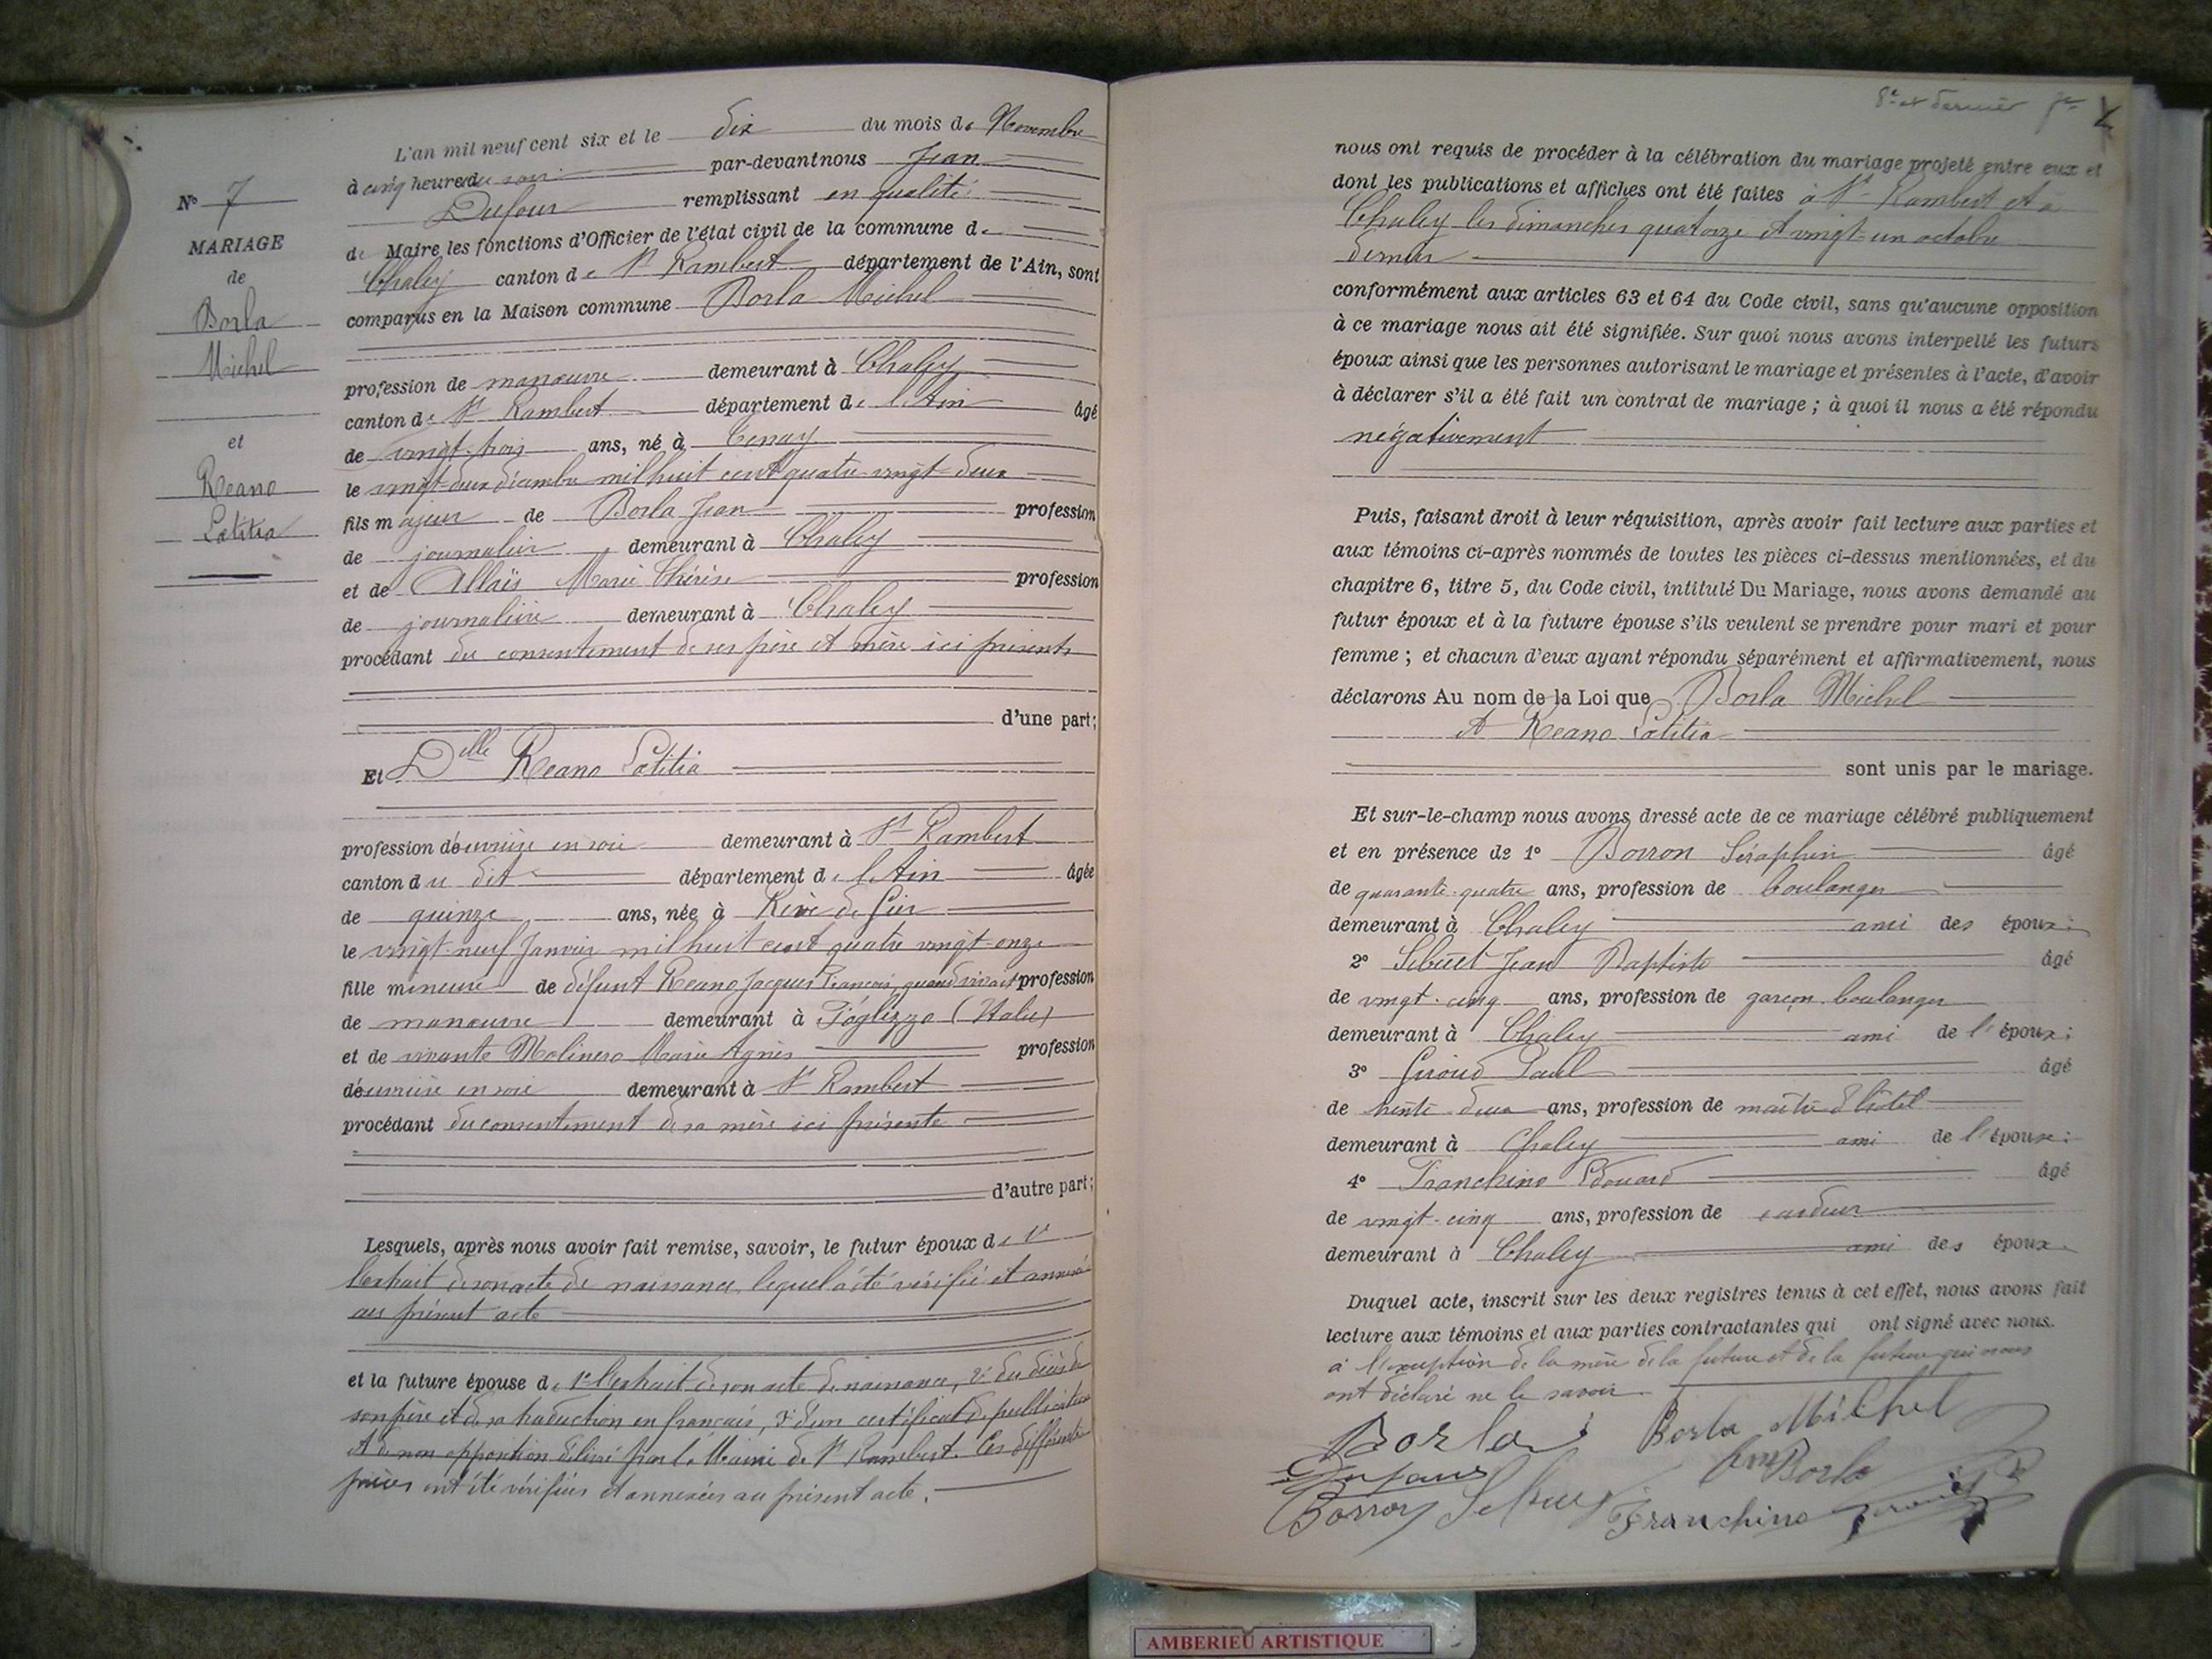 N° 7
MARIAGE
de
Borla
Michel
et
Reano
Latitia
L'an mil neuf cent six et le dix du mois de Novembre
à cinq heures du soir par-devant nous Jean
Dufour remplissant en qualité
de Maire les fonctions d'Officier de l'état civil de la commune de
Chaley canton de St Rambert département de l'Ain, sont
comparus en la Maison commune Borla Michel
profession de manœuvre demeurant à Chaley
canton de St Rambert département de l'Ain âgé
de vingt-trois ans, né à Tenay
le vingt-deux décembre mil huit cent quatre-vingt-deux
fils majeur de Borla Jean profession
de journalier demeurant à Chaley
et de Allaïs Marie Thérèse profession
de journalière demeurant à Chaley
procédant du consentement de ses père et mère ici présents
d'une part;
Et Delle Reano Latitia
profession d'ouvrière en soie demeurant à St Rambert
canton du dit département de l'Ain âgée
de quinze ans, née à Rive de Gier
le vingt-neuf Janvier mil huit cent quatre vingt-onze
fille mineure de défunt Reano Jacques François, quand vivait profession
de manœuvre demeurant à Foglizzo (Italie)
et de vivante Molinero Marie Agnès profession
d'ouvrière en soie demeurant à St Rambert
procédant du consentement de sa mère ici présente
d'autre part;
Lesquels, après nous avoir fait remise, savoir, le futur époux de 1°
l'extrait de son acte de naissance, lequel a été vérifié et annexé
au présent acte
et la future épouse de 1° l'extrait de son acte de naissance, 2° du décès de
son père et de sa traduction en français, 3° d'un certificat de publication
et de non opposition délivré par le Maire de St Rambert. Ces différentes
pièces ont été vérifiées et annexées au présent acte.
8e et dernier
nous ont requis de procéder à la célébration du mariage projeté entre eux et
dont les publications et affiches ont été faites à St Rambert et à
Chaley les dimanches quatorze et vingt-un octobre
dernier
conformément aux articles 63 et 64 du Code civil, sans qu'aucune opposition
à ce mariage nous ait été signifiée. Sur quoi nous avons interpellé les futurs
époux ainsi que les personnes autorisant le mariage et présentes à l'acte, d'avoir
à déclarer s'il a été fait un contrat de mariage ; à quoi il nous a été répondu
négativement
Puis, faisant droit à leur réquisition, après avoir fait lecture aux parties et
aux témoins ci-après nommés de toutes les pièces ci-dessus mentionnées, et du
chapitre 6, titre 5, du Code civil, intitulé Du Mariage, nous avons demandé au
futur époux et à la future épouse s'ils veulent se prendre pour mari et pour
femme ; et chacun d'eux ayant répondu séparément et affirmativement, nous
déclarons Au nom de la Loi que Borla Michel
et Reano Latitia
sont unis par le mariage.
Et sur-le-champ nous avons dressé acte de ce mariage célébré publiquement
et en présence de 1° Borron Séraphin âgé
de quarante-quatre ans, profession de boulanger
demeurant à Chaley ami des époux;
2° Sibuet Jean Baptiste âgé
de vingt-cinq ans, profession de garçon boulanger
demeurant à Chaley ami de l'époux;
3° Giroud Paul âgé
de trente-deux ans, profession de maître d'hôtel
demeurant à Chaley ami de l'épouse;
4° Franchino Edouard âgé
de vingt-cinq ans, profession de cardeur
demeurant à Chaley ami des époux.
Duquel acte, inscrit sur les deux registres tenus à cet effet, nous avons fait
lecture aux témoins et aux parties contractantes qui ont signé avec nous.
à l'exception de la mère de la future et de la future qui nous
ont déclaré ne le savoir.
Borla Borla Michel
Dufour fme Borla
Borron Sibuet Franchino
AMBERIEU ARTISTIQUE